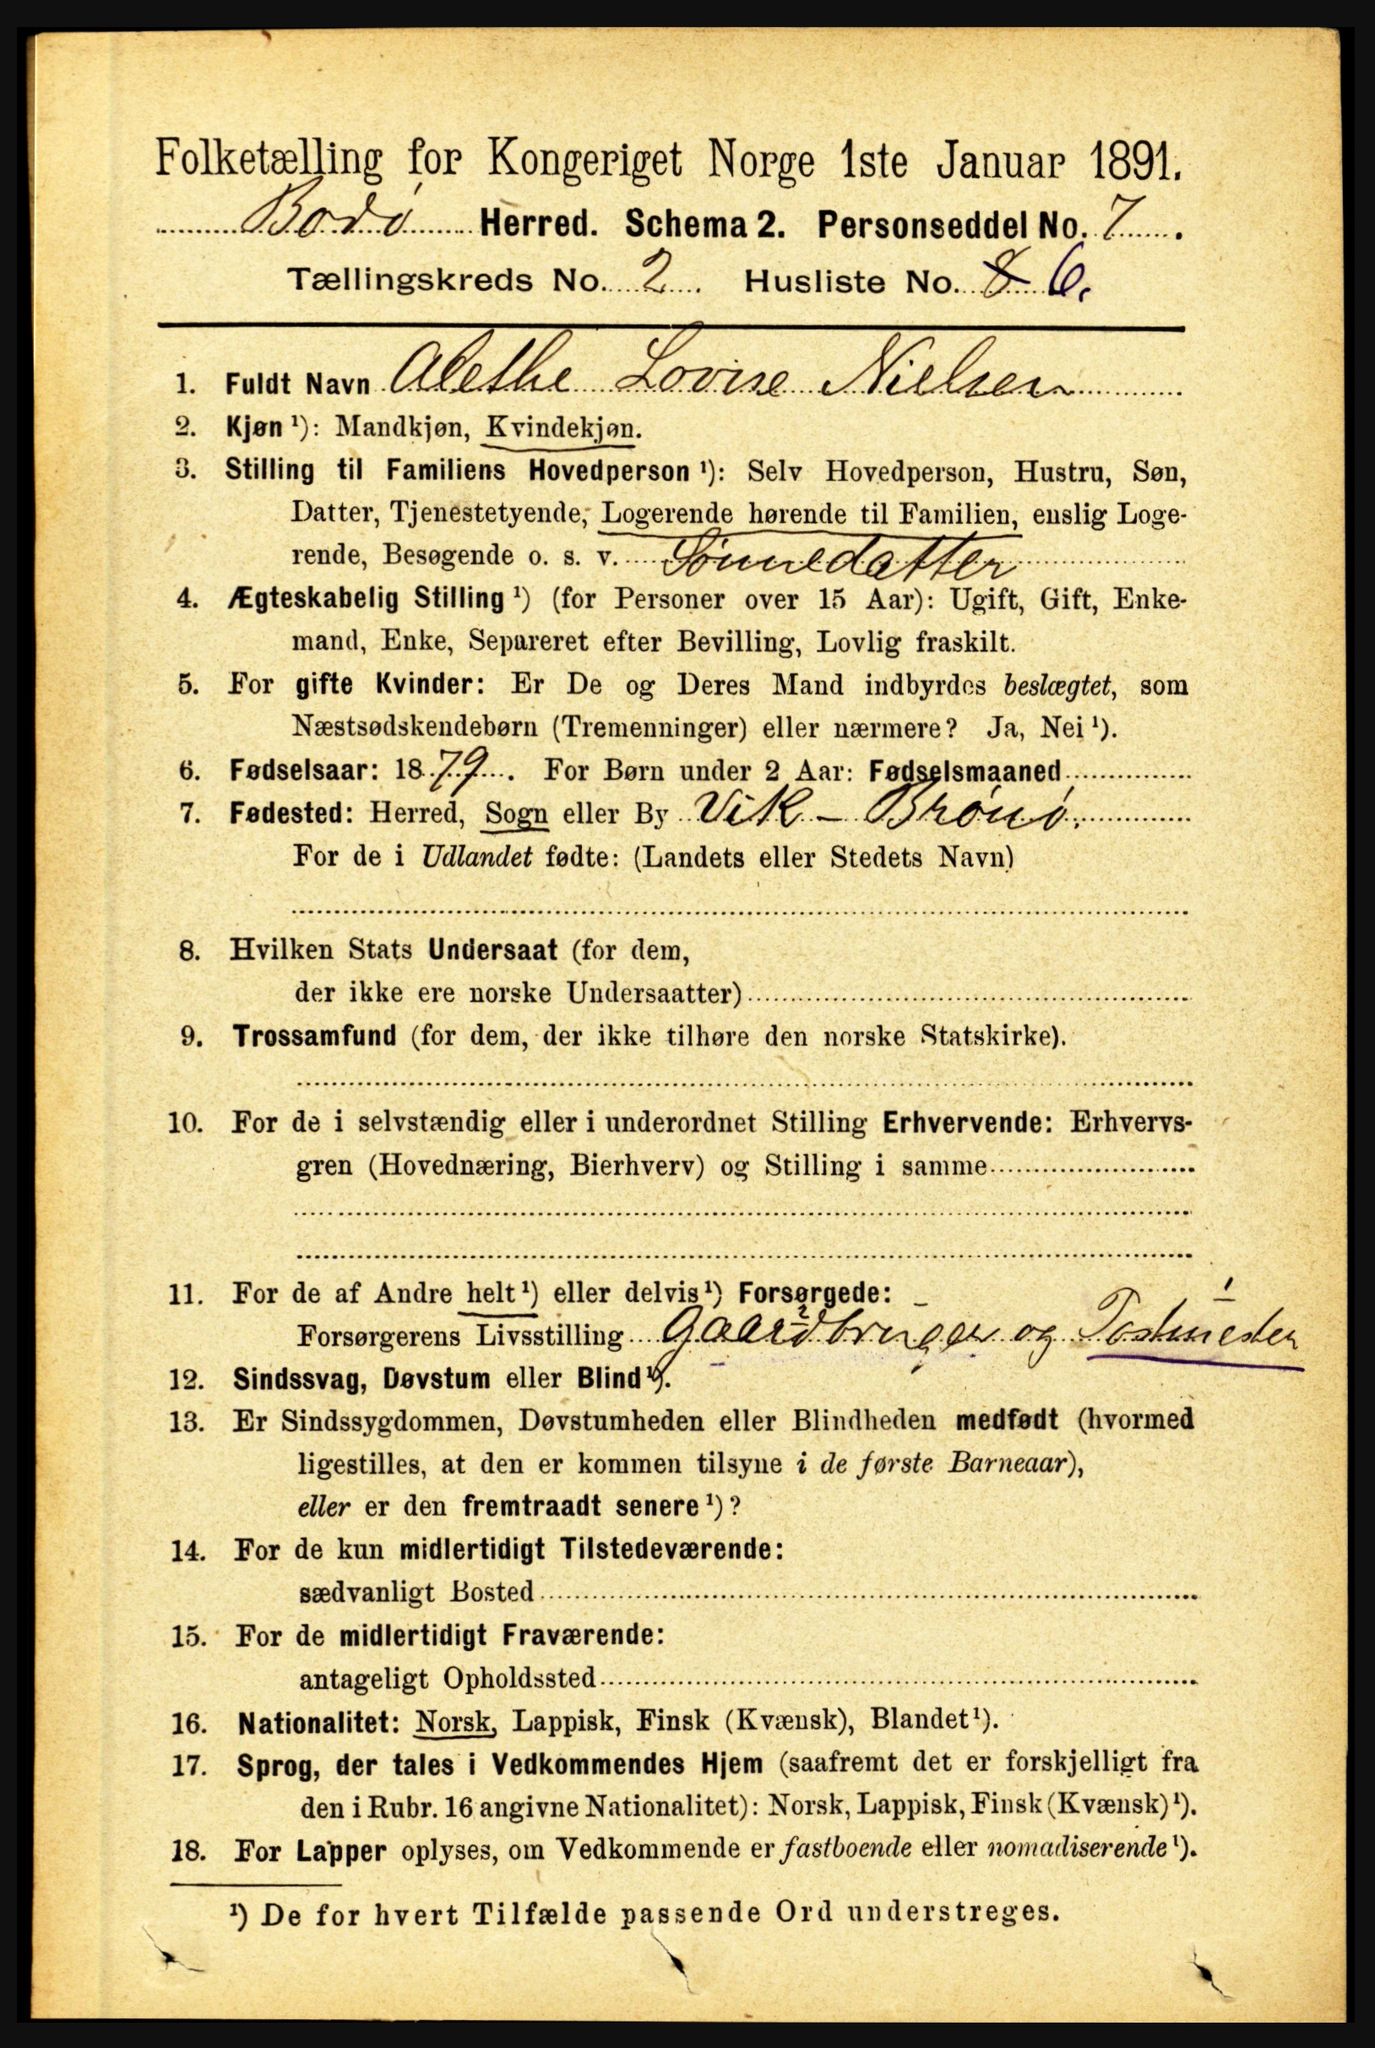 Folketælling for Kongeriget Norge 1ste Januar 1891.
Bodø Herred. Schema 2. Personseddel No. 7.
Tællingskreds No. 2. Husliste No. 8 6.
1. Fuldt Navn Alethe Lovise Nielsen
2. Kjøn ¹): Mandkjøn, Kvindekjøn.
3. Stilling til Familiens Hovedperson ¹): Selv Hovedperson, Hustru, Søn,
Datter, Tjenestetyende, Logerende hørende til Familien, enslig Loge-
rende, Besøgende o. s. v. Sønnedatter
4. Ægteskabelig Stilling ¹) (for Personer over 15 Aar): Ugift, Gift, Enke-
mand, Enke, Separeret efter Bevilling, Lovlig fraskilt.
5. For gifte Kvinder: Er De og Deres Mand indbyrdes beslægtet, som
Næstsødskendebørn (Tremenninger) eller nærmere? Ja, Nei ¹).
6. Fødselsaar: 1879. For Børn under 2 Aar: Fødselsmaaned
7. Fødested: Herred, Sogn eller By Vik - Brønø.
For de i Udlandet fødte: (Landets eller Stedets Navn)
8. Hvilken Stats Undersaat (for dem,
der ikke ere norske Undersaatter)
9. Trossamfund (for dem, der ikke tilhøre den norske Statskirke).
10. For de i selvstændig eller i underordnet Stilling Erhvervende: Erhvervs-
gren (Hovednæring, Bierhverv) og Stilling i samme
11. For de af Andre helt ¹) eller delvis ¹) Forsørgede:
2 1
Forsørgerens Livsstilling Gaardbruger og Postmester
12. Sindssvag, Døvstum eller Blind ¹).
13. Er Sindssygdommen, Døvstumheden eller Blindheden medfødt (hvormed
ligestilles, at den er kommen tilsyne i de første Barneaar),
eller er den fremtraadt senere ¹)?
14. For de kun midlertidigt Tilstedeværende:
sædvanligt Bosted
15. For de midlertidigt Fraværende:
antageligt Opholdssted
16. Nationalitet: Norsk, Lappisk, Finsk (Kvænsk), Blandet ¹).
17. Sprog, der tales i Vedkommendes Hjem (saafremt det er forskjelligt fra
den i Rubr. 16 angivne Nationalitet): Norsk, Lappisk, Finsk (Kvænsk) ¹).
18. For Lapper oplyses, om Vedkommende er fastboende eller nomadiserende ¹).
¹) De for hvert Tilfælde passende Ord understreges.